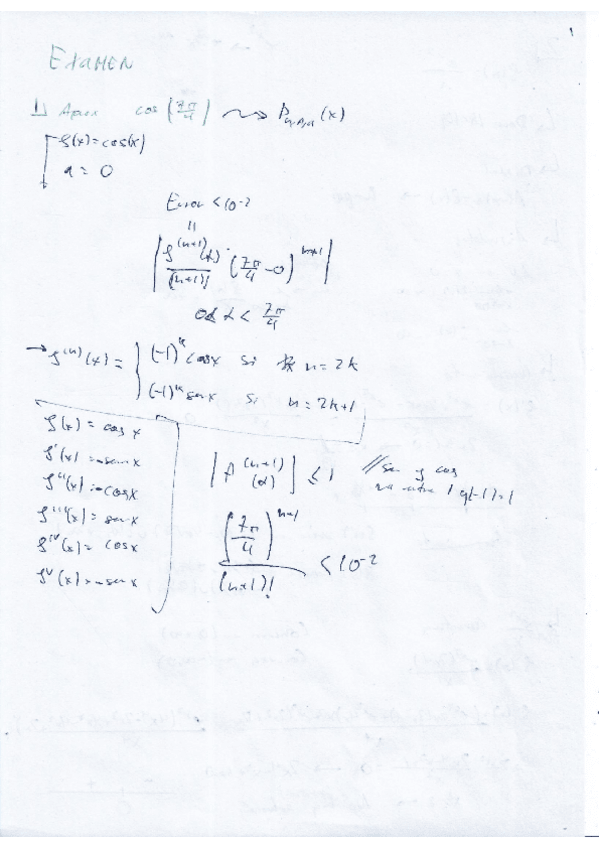 1
Examen
1) Aprox cos (7π/4) ⇝ P_{n,f,a}(x)
f(x) = cos(x)
a = 0
Error < 10^-2
||
| f^(n+1)(α) / (n+1)! · (7π/4 - 0)^{n+1} |
0 < α < 7π/4
→ f^(n)(x) = { (-1)^k cos x si n = 2k
(-1)^k sen x si n = 2k+1
f(x) = cos x
f'(x) = -sen x
f''(x) = -cos x
f'''(x) = sen x
f^IV(x) = cos x
f^V(x) = -sen x
| f^(n+1)(α) | ≤ 1 // Sen y cos
(7π/4)^{n+1} / (n+1)! < 10^-2